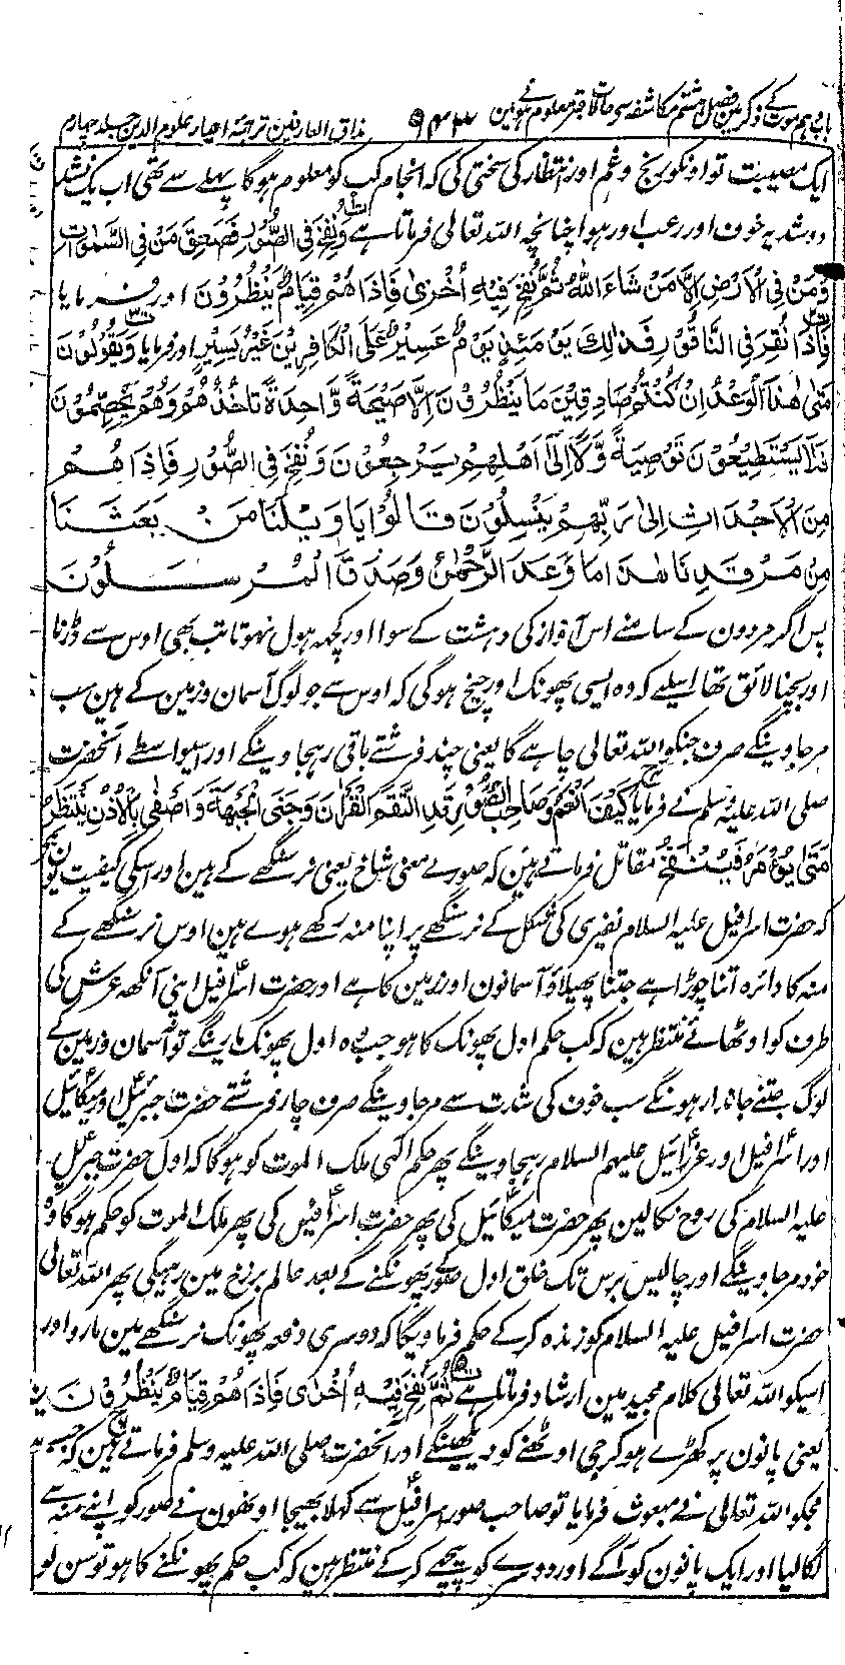 باب ہم موت کے ذکر مین فصل ہشتم مکاشفہ سے حالات قبر معلوم ہونے مین ۹۴۳ مذاق العارفین ترجمۂ احیار علوم الدین جلد چہارم
ایک مصیبت تو اونکو رنج و غم اور انتظار کی سختی کی کہ انجام کب کو معلوم ہوگا پہلے سے تھی اب یک نشد
دو شد یہ خوف اور رعب اور ہوا چنانچہ اللہ تعالی فرماتا ہے وَنُفِخَ فِی الصُّوْرِ فَصَعِقَ مَنْ فِی السَّمٰوٰتِ
وَمَنْ فِی الْاَرْضِ اِلَّا مَنْ شَاءَ اللّٰهُ ثُمَّ نُفِخَ فِیْهِ اُخْرٰی فَاِذَا هُمْ قِیَامٌ یَّنْظُرُوْنَ اور فرمایا
فَاِذَا نُقِرَ فِی النَّاقُوْرِ فَذٰلِكَ یَوْمَئِذٍ یَوْمٌ عَسِیْرٌ عَلَی الْکَافِرِیْنَ غَیْرُ یَسِیْرٍ اور فرمایا وَیَقُوْلُوْنَ
مَتٰی هٰذَا الْوَعْدُ اِنْ کُنْتُمْ صَادِقِیْنَ مَا یَنْظُرُوْنَ اِلَّا صَیْحَةً وَّاحِدَةً تَاْخُذُهُمْ وَهُمْ یَخِصِّمُوْنَ
فَلَا یَسْتَطِیْعُوْنَ تَوْصِیَةً وَّلَا اِلٰی اَهْلِهِمْ یَرْجِعُوْنَ وَنُفِخَ فِی الصُّوْرِ فَاِذَا هُمْ
مِنَ الْاَجْدَاثِ اِلٰی رَبِّهِمْ یَنْسِلُوْنَ قَالُوْا یَا وَیْلَنَا مَنْ بَعَثَنَا
مِنْ مَرْقَدِنَا هٰذَا مَا وَعَدَ الرَّحْمٰنُ وَصَدَقَ الْمُرْسَلُوْنَ
پس اگر مردون کے سامنے اس آواز کی دہشت کے سوا اور کچھ ہول نہوتا تب بھی اوس سے ڈرنا
اور بچنا لائق تھا اسلیے کہ وہ ایسی پھونک اور چیخ ہوگی کہ اوس سے جو لوگ آسمان و زمین کے ہین سب
مر جاوینگے صرف جنکو اللہ تعالی چاہے گا یعنی چند فرشتے باقی رہجاوینگے اور اسیواسطے آنحضرت
صلی اللہ علیہ وسلم نے فرمایا کَیْفَ اَنْعَمُ وَصَاحِبُ الصُّوْرِ قَدِ الْتَقَمَ الْقَرْنَ وَحَنَی الْجَبْهَةَ وَاَصْغٰی بِالْاُذُنِ یَنْتَظِرُ
مَتٰی یُؤْمَرُ فَیَنْفُخُ مقاتل فرماتے ہین کہ صور بے معنی شاخ یعنی نرسنگھے کے ہین اور اسکی کیفیت یون ہے
کہ حضرت اسرافیل علیہ السلام نفیری کی شکل کے نرسنگھے پر اپنا منہ رکھے ہوے ہین اوس نرسنگھے کے
منہ کا دائرہ اتنا چوڑا ہے جتنا پھیلاؤ آسمانون اور زمین کا ہے اور حضرت اسرافیل اپنی آنکھ عرش کی
طرف کو اوٹھائے منتظر ہین کہ کب حکم اول پھونک کا ہو جب وہ اول پھونک مارینگے تو آسمان و زمین کے
لوگ جتنے جاندار ہونگے سب خوف کی شدت سے مر جاوینگے صرف چار فرشتے حضرت جبرئیل اور میکائیل
اور اسرافیل اور عزرائیل علیہم السلام رہجاوینگے پھر حکم الٰہی ملک الموت کو ہوگا کہ اول حضرت جبرئیل
علیہ السلام کی روح نکالین پھر حضرت میکائیل کی پھر حضرت اسرافیل کی پھر ملک الموت کو حکم ہوگا وہ
خود مر جاوینگے اور چالیس برس تک خلق اول صور پھونکنے کے بعد عالم برزخ مین رہیگی پھر اللہ تعالی
حضرت اسرافیل علیہ السلام کو زندہ کرکے حکم فرماویگا کہ دوسری دفعہ پھونک نرسنگھے مین مارو اور
اسیکو اللہ تعالی کلام مجید مین ارشاد فرماتا ہے ثُمَّ نُفِخَ فِیْهِ اُخْرٰی فَاِذَا هُمْ قِیَامٌ یَّنْظُرُوْنَ
یعنی پانون پر کھڑے ہوکر جی اوٹھنے کو دیکھینگے اور آنحضرت صلی اللہ علیہ وسلم فرماتے ہین کہ جب
مجکو اللہ تعالی نے مبعوث فرمایا تو صاحب صور اسرافیل سے کہلا بھیجا اونھون نے صور کو اپنے منہ سے
لگا لیا اور ایک پانون کو آگے اور دوسرے کو پیچھے کرکے منتظر ہین کہ کب حکم پھونکنے کا ہو تو سن لو